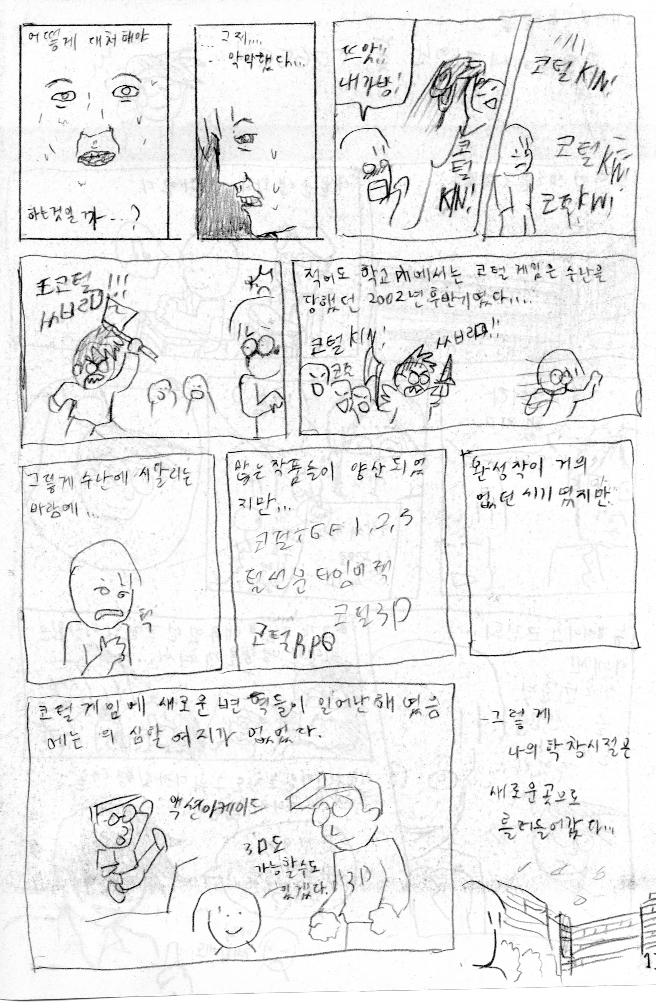 어떻게 대처해야
하는것일까...?
...그제....
...막막했다...
뜨앗!!
내가방!
코털
KIN!
코털 KIN!
코털 KIN!
코털KIN!
코털
씨브라!!!
적어도 학교內에서는 코털 게임은 수난을
당했던 2002년 후반기였다....
코털 KIN!
코즈
씨브라!!
그렇게 수난에 시달리는
바람에...
힝
턱
많은 작품들이 양산되었
지만...
코털 1,2,3
털선분 타임어택
코털3D
코털RPG
완성작이 거의
없던 시기였지만
코털 게임에 새로운 변혁들이 일어난해 였음
에는 의심할 여지가 없었다.
액션아케이드
3D도
가능할수도
있겠다.
3D
-그렇게
나의 학창시절은
새로운곳으로
흘러들어갔다...